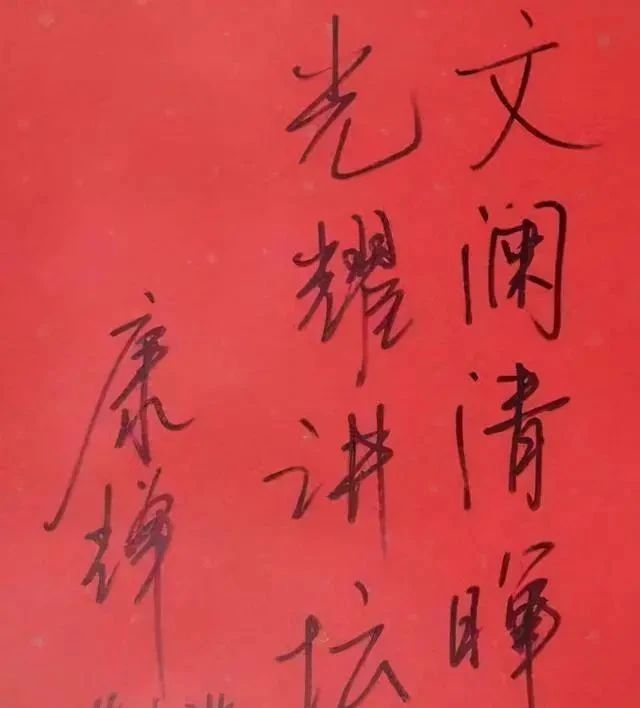 文澜清晖
光耀讲坛
康辉